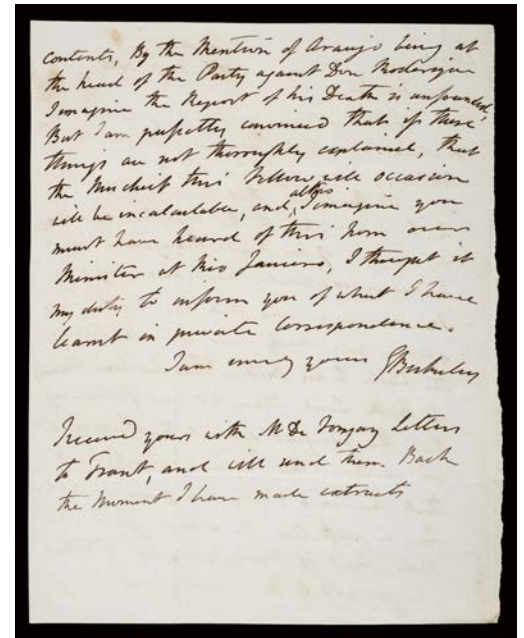 contents, By the Mention of Araujo being at
the head of the Party against Don Roderigue
I imagine the Report of his Death is unfounded,
But I am perfectly convinced that if these
things are not thoroughly explained, that
the Mischief this fellow will occasion
will be incalculable, and, altho I imagine you
must have heard of this from our
Minister at Rio Janeiro, I thought it
my duty to inform you of what I have
learnt in private Correspondence.
I am ever yours GBerkeley
I received yours with M De Letters
to Trant, and will send them Back
the Moment I have made extracts